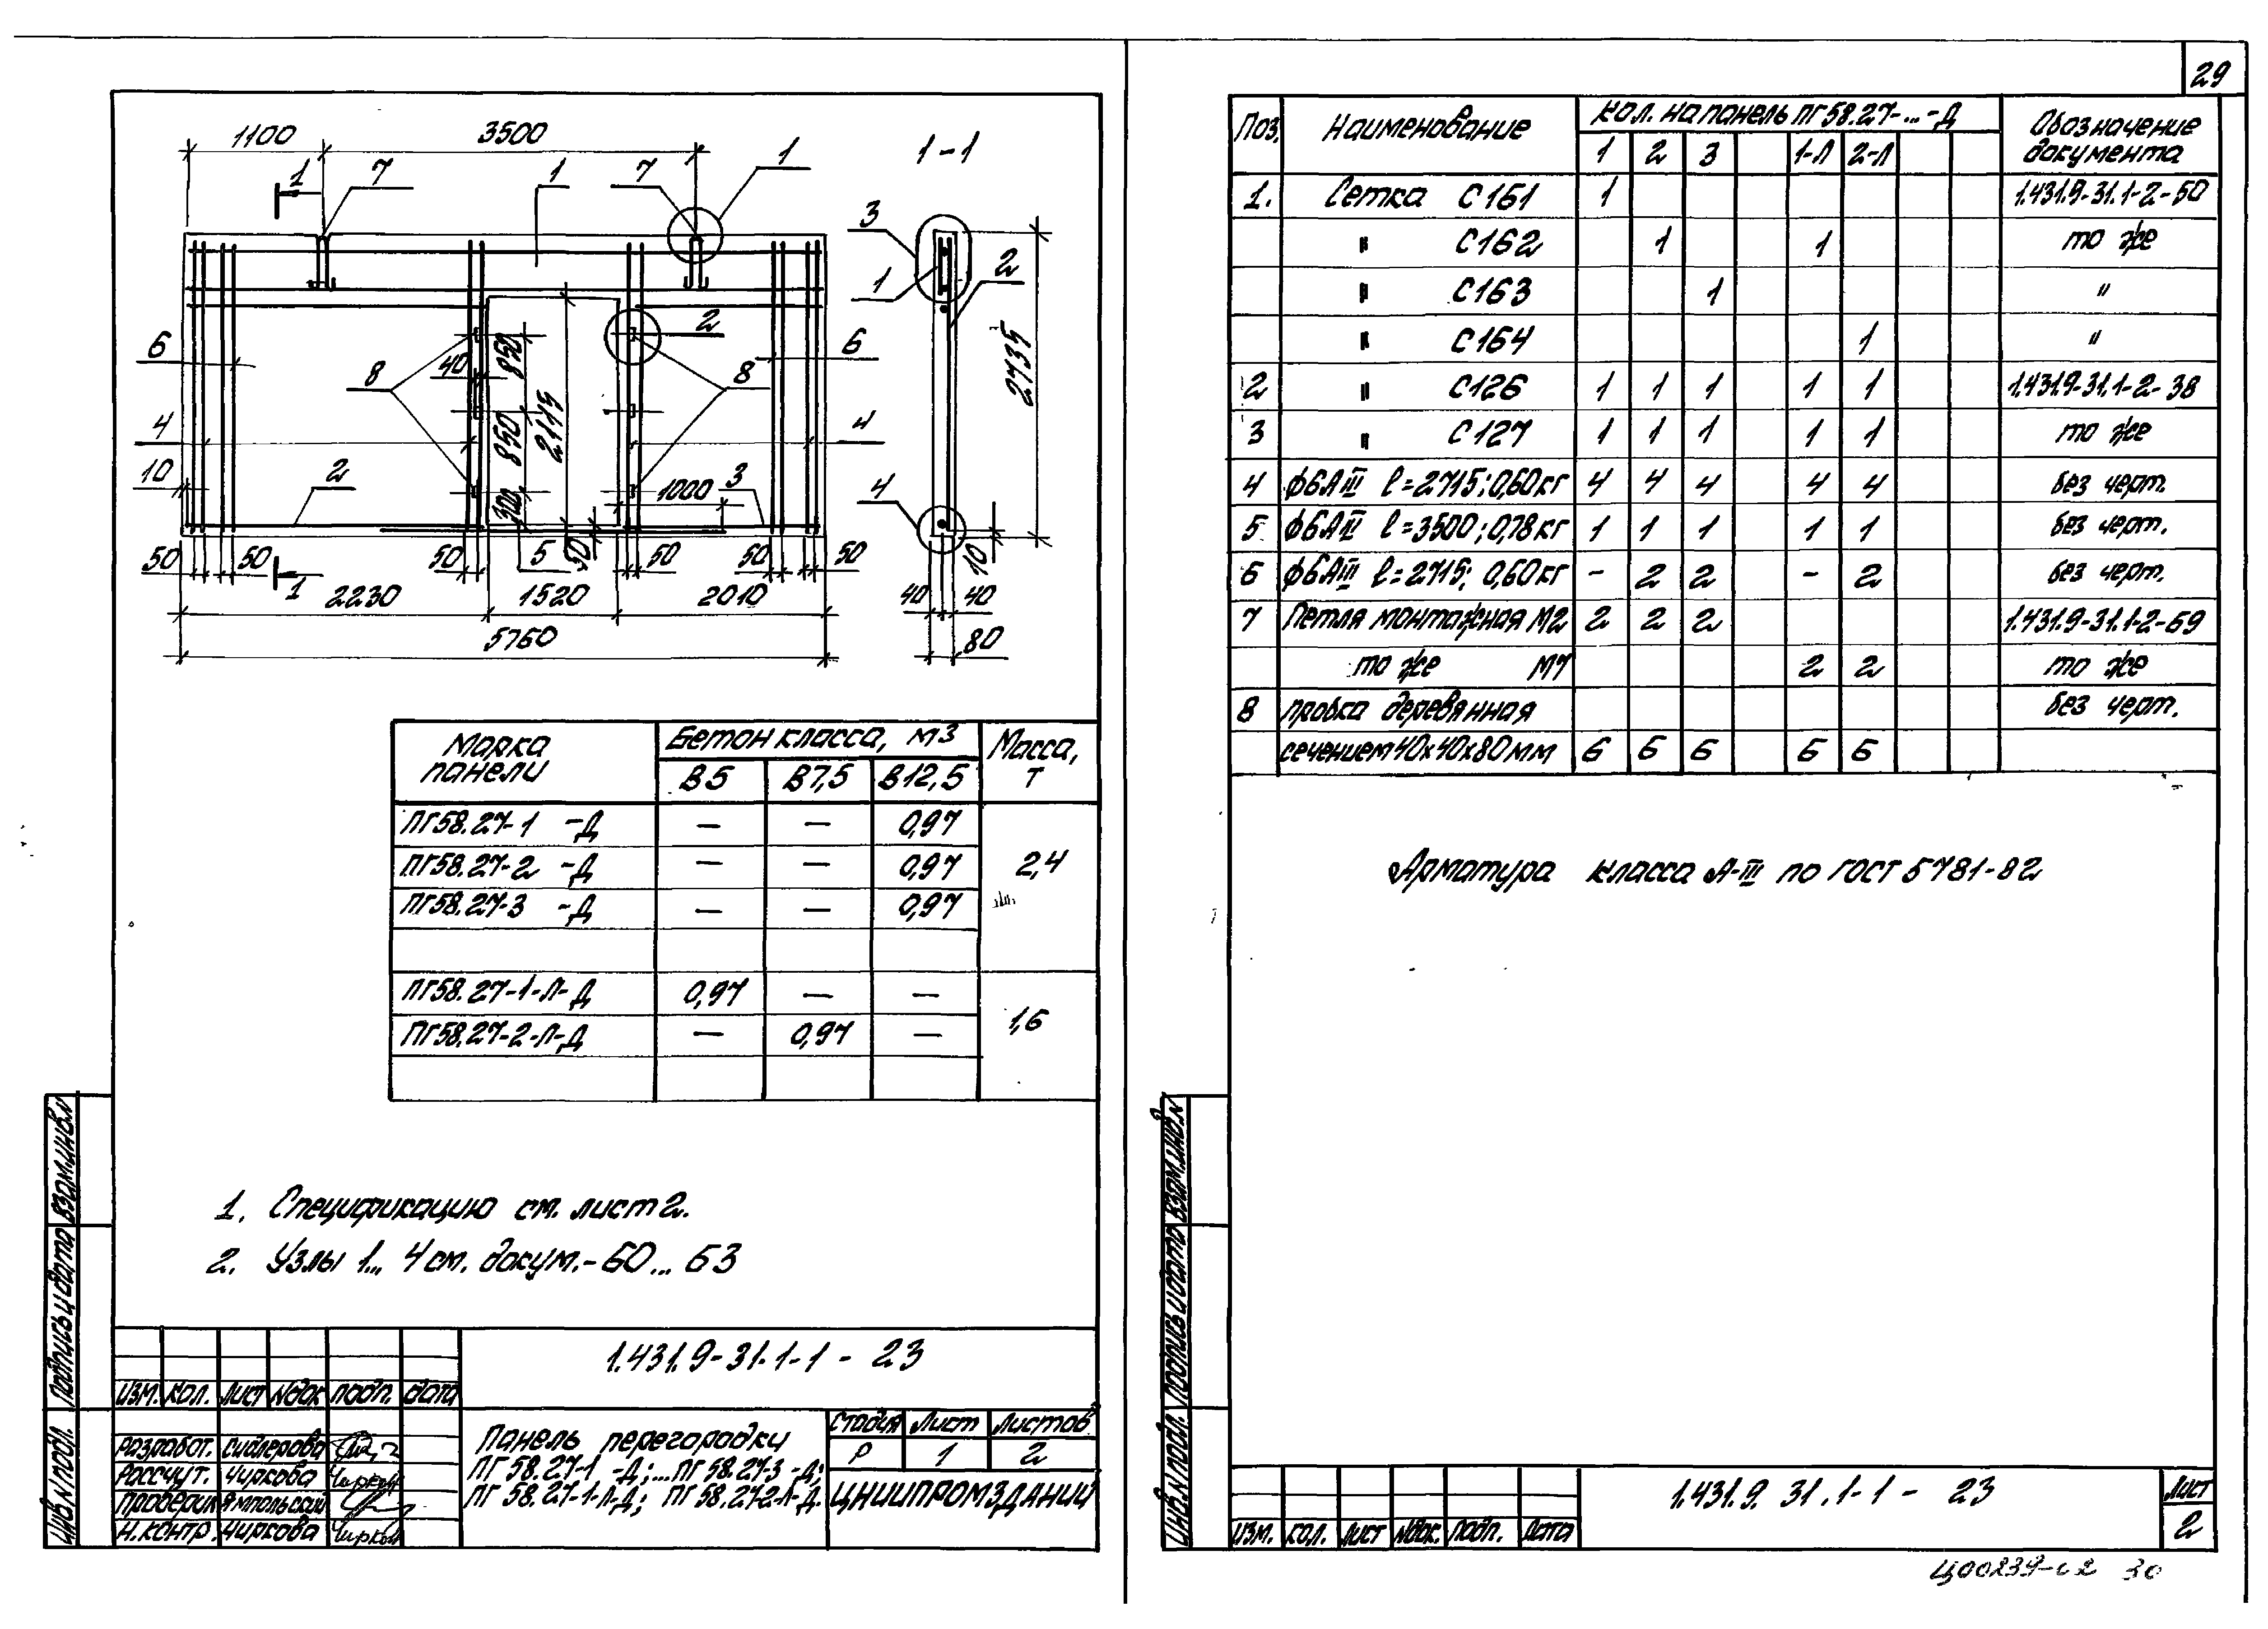 1100 3500 1-1
1 7 1 7 1
3
1
2
6 8 40 850 2 8 6
2115
4 850 4
2735
10 2 300 1000 3 4
50 50 50 5 50 50 50 50 10
1
2230 1520 2010 40 40
5760 80
Марка панели Бетон класса, м3 Масса, т
В5 В7,5 В12,5
ПГ58.27-1 -Д — — 0,97
ПГ58.27-2 -Д — — 0,97 2,4
ПГ58.27-3 -Д — — 0,97
ПГ58.27-1-Л-Д 0,97 — —
1,6
ПГ58.27-2-Л-Д — 0,97 —
1. Спецификацию см. лист 2.
2. Узлы 1... 4 см. докум.-60...63
Инв.N подл. Подпись и дата Взам.инв.N
1.431.9-31.1-1 - 23
Изм. Кол. Лист Nдок подп. дата
Разработ. Сидлерова
Рассчит. Чиркова Чиркова
Проверил Ямпольский
Н.контр. Чиркова Чиркова
Панель перегородки
ПГ 58.27-1 -Д;...ПГ 58.27-3 -Д;
ПГ 58.27-1-Л-Д; ПГ 58.27-2-Л-Д.
Стадия Лист Листов
Р 1 2
ЦНИИПРОМЗДАНИЙ
29
Поз. Наименование Кол. на панель ПГ58.27-...-Д Обозначение документа
1 2 3 1-Л 2-Л
1. Сетка С161 1 1.431.9-31.1-2-50
" С162 1 1 то же
" С163 1 "
" С164 1 "
2 " С126 1 1 1 1 1 1.431.9-31.1-2-38
3 " С127 1 1 1 1 1 то же
4 ф6АIII ℓ=2715; 0,60кг 4 4 4 4 4 без черт.
5 ф6АIII ℓ=3500; 0,78кг 1 1 1 1 1 без черт.
6 ф6АIII ℓ=2715; 0,60кг - 2 2 - 2 без черт.
7 Петля монтажная М2 2 2 2 1.431.9-31.1-2-69
то же М7 2 2 то же
8 пробка деревянная без черт.
сечением 40х40х80мм 6 6 6 6 6
Арматура класса А-III по ГОСТ 5781-82
Инв.N подл. Подпись и дата Взам.инв.N
1.431.9.31.1-1 - 23 Лист
Изм. кол. Лист Nдок. подп. Дата 2
Ц00239-02 30